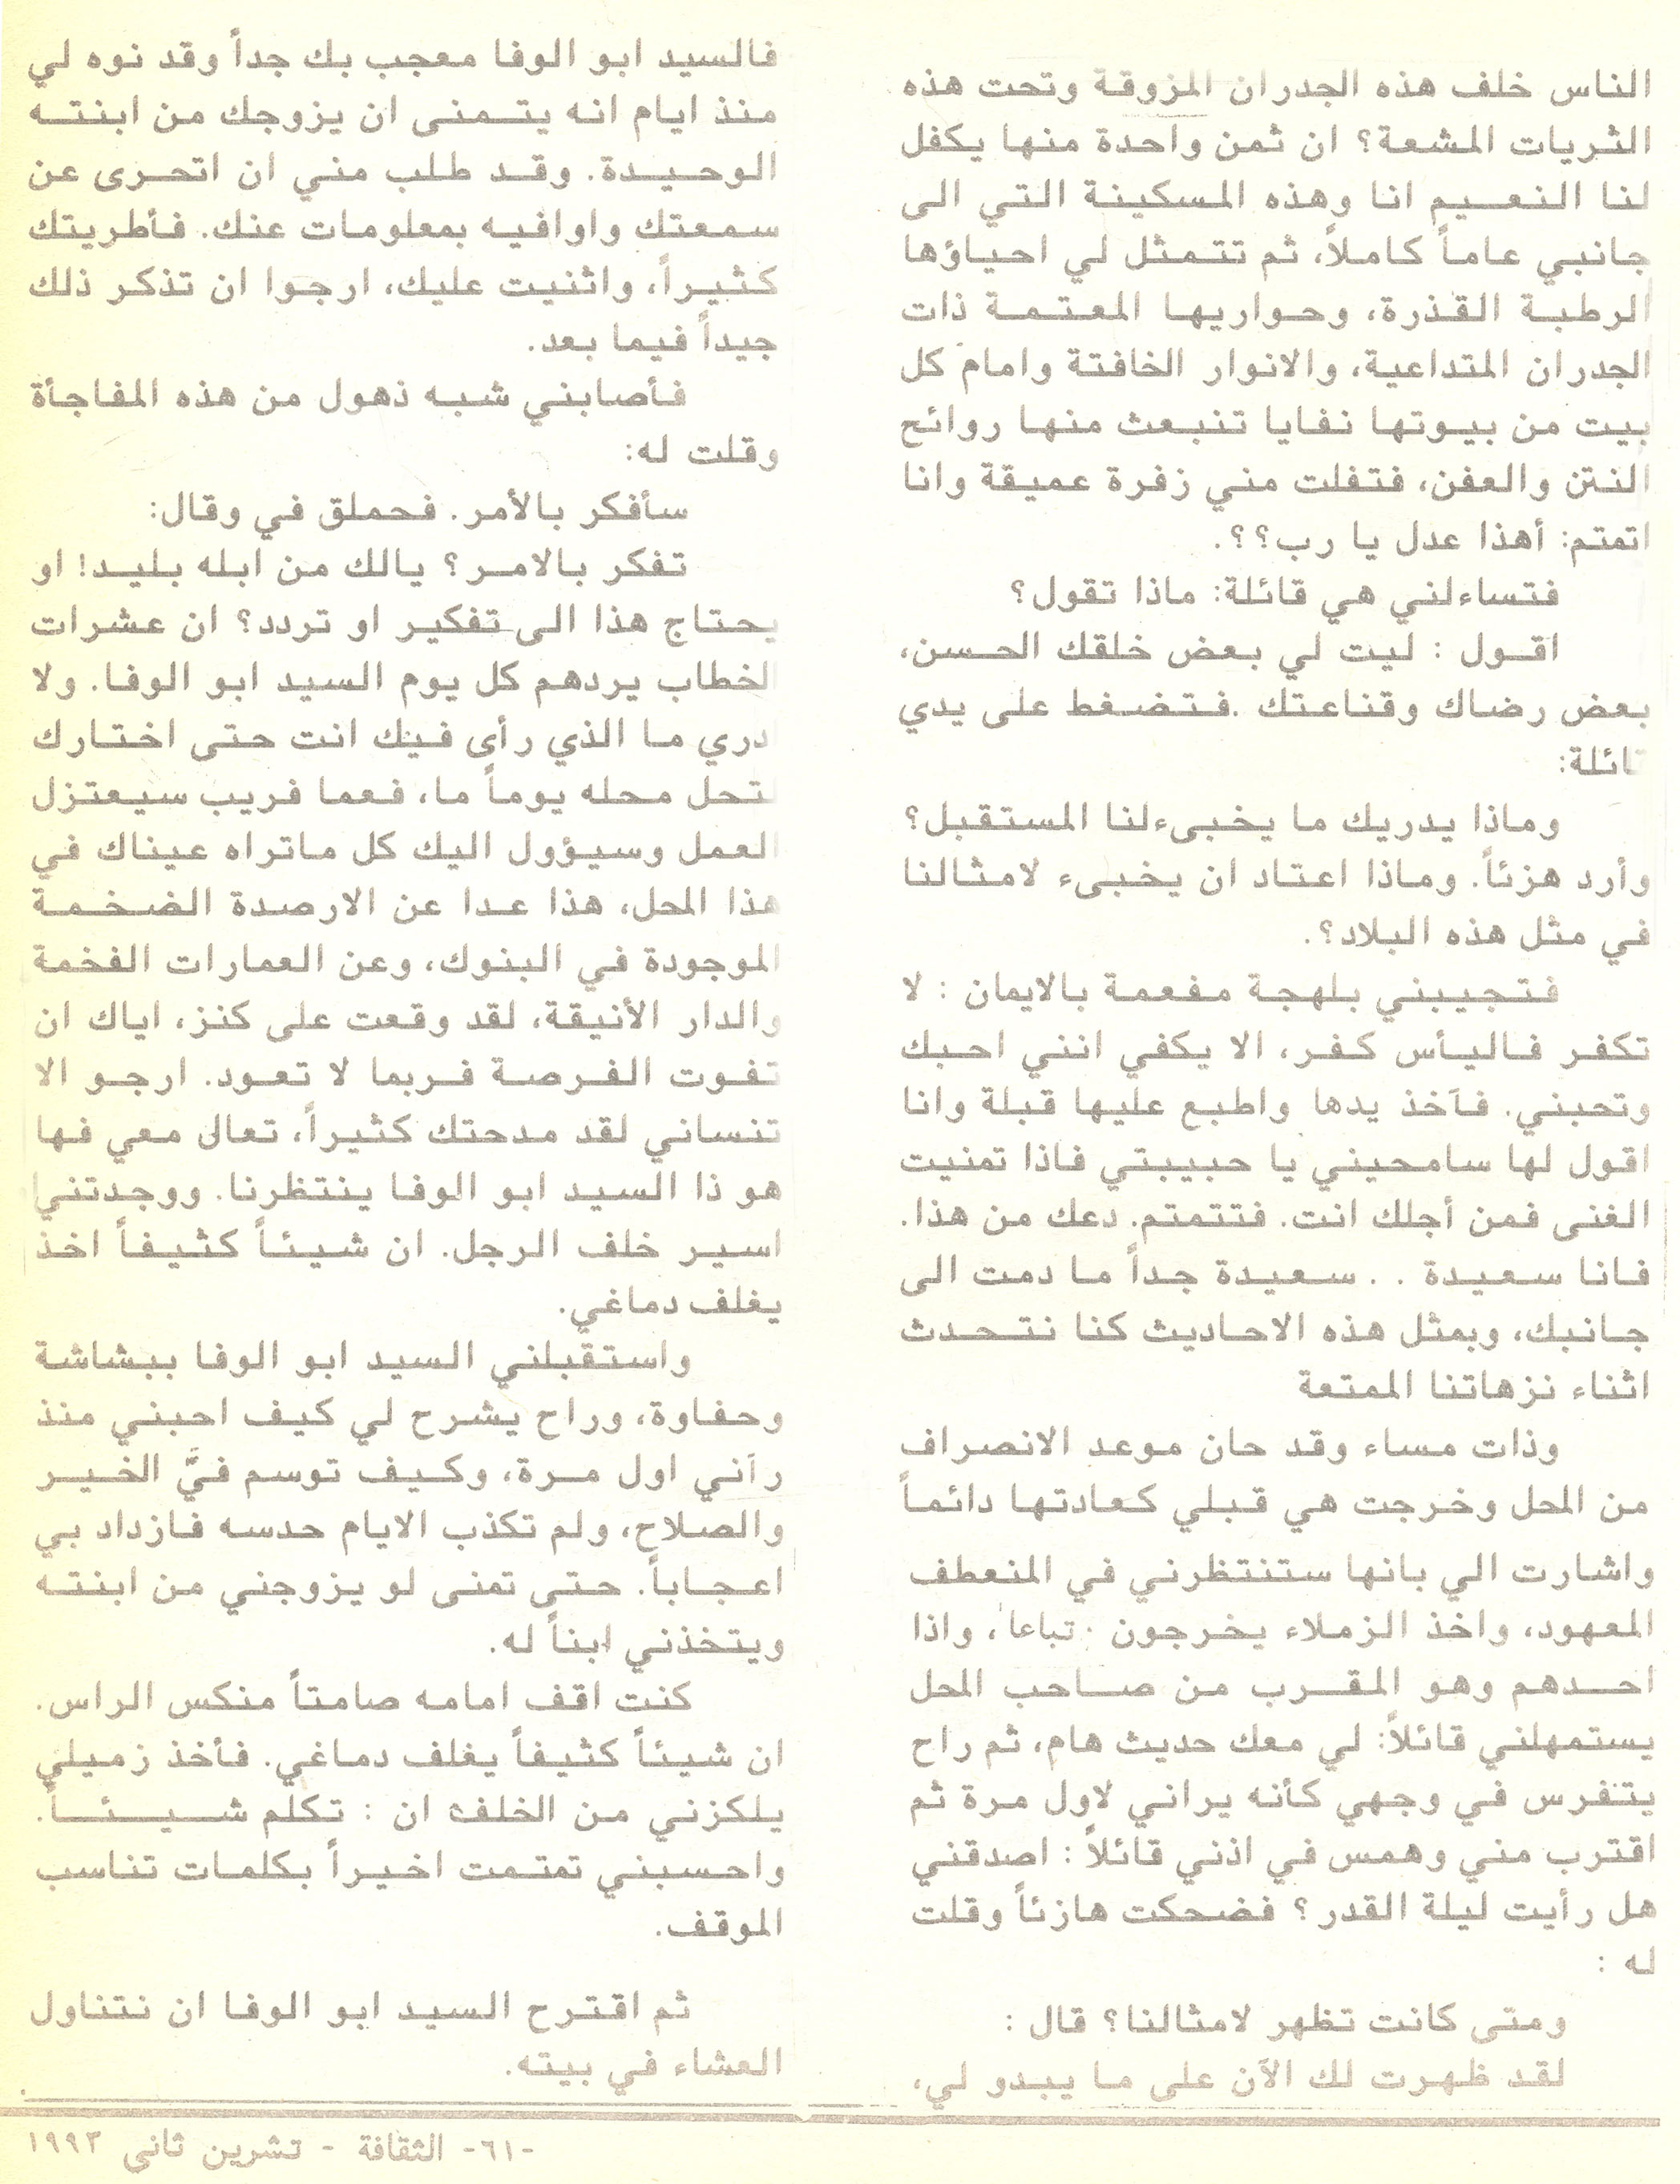 الناس خلف هذه الجدران المزوقة وتحت هذه
الثريات المشعة؟ ان ثمن واحدة منها يكفل
لنا النعيم انا وهذه المسكينة التي الى
جانبي عاماً كاملاً، ثم تتمثل لي احياؤها
الرطبة القذرة، وحواريها المعتمة ذات
الجدران المتداعية، والانوار الخافتة وامام كل
بيت من بيوتها نفايا تنبعث منها روائح
النتن والعفن، فتفلت مني زفرة عميقة وانا
اتمتم: أهذا عدل يا رب؟؟.
فتساءلني هي قائلة: ماذا تقول؟
اقول : ليت لي بعض خلقك الحسن،
بعض رضاك وقناعتك .فتضغط على يدي
قائلة:
وماذا يدريك ما يخبىءلنا المستقبل؟
وأرد هزئاً. وماذا اعتاد ان يخبىء لامثالنا
في مثل هذه البلاد؟.
فتجيبني بلهجة مفعمة بالايمان : لا
تكفر فاليأس كفر، الا يكفي انني احبك
وتحبني. فآخذ يدها واطبع عليها قبلة وانا
اقول لها سامحيني يا حبيبتي فاذا تمنيت
الغنى فمن أجلك انت. فتتمتم. دعك من هذا.
فانا سعيدة . . سعيدة جداً ما دمت الى
جانبك، وبمثل هذه الاحاديث كنا نتحدث
اثناء نزهاتنا الممتعة
وذات مساء وقد حان موعد الانصراف
من المحل وخرجت هي قبلي كعادتها دائماً
واشارت الي بانها ستنتظرني في المنعطف
المعهود، واخذ الزملاء يخرجون تباعا، واذا
احدهم وهو المقرب من صاحب المحل
يستمهلني قائلاً: لي معك حديث هام، ثم راح
يتفرس في وجهي كأنه يراني لاول مرة ثم
اقترب مني وهمس في اذني قائلاً : اصدقني
هل رأيت ليلة القدر؟ فضحكت هازئاً وقلت
له :
ومتى كانت تظهر لامثالنا؟ قال :
لقد ظهرت لك الآن على ما يبدو لي،
فالسيد ابو الوفا معجب بك جداً وقد نوه لي
منذ ايام انه يتمنى ان يزوجك من ابنته
الوحيدة. وقد طلب مني ان اتحرى عن
سمعتك واوافيه بمعلومات عنك. فأطريتك
كثيراً، واثنيت عليك، ارجوا ان تذكر ذلك
جيداً فيما بعد.
فأصابني شبه ذهول من هذه المفاجأة
وقلت له:
سأفكر بالأمر. فحملق في وقال:
تفكر بالامر؟ يالك من ابله بليد! او
يحتاج هذا الى تفكير او تردد؟ ان عشرات
الخطاب يردهم كل يوم السيد ابو الوفا. ولا
ادري ما الذي رأى فيك انت حتى اختارك
لتحل محله يوماً ما، فعما قريب سيعتزل
العمل وسيؤول اليك كل ماتراه عيناك في
هذا المحل، هذا عدا عن الارصدة الضخمة
الموجودة في البنوك، وعن العمارات الفخمة
والدار الأنيقة، لقد وقعت على كنز، اياك ان
تفوت الفرصة فربما لا تعود. ارجو الا
تنساني لقد مدحتك كثيراً، تعال معي فها
هو ذا السيد ابو الوفا ينتظرنا. ووجدتني
اسير خلف الرجل. ان شيئاً كثيفاً اخذ
يغلف دماغي.
واستقبلني السيد ابو الوفا ببشاشة
وحفاوة، وراح يشرح لي كيف احبني منذ
رآني اول مرة، وكيف توسم فيَّ الخير
والصلاح، ولم تكذب الايام حدسه فازداد بي
اعجاباً. حتى تمنى لو يزوجني من ابنته
ويتخذني ابناً له.
كنت اقف امامه صامتاً منكس الراس.
ان شيئاً كثيفاً يغلف دماغي. فأخذ زميلي
يلكزني من الخلف ان : تكلم شيئاً.
واحسبني تمتمت اخيراً بكلمات تناسب
الموقف.
ثم اقترح السيد ابو الوفا ان نتناول
العشاء في بيته.
-٦١- الثقافة - تشرين ثاني ١٩٩٣